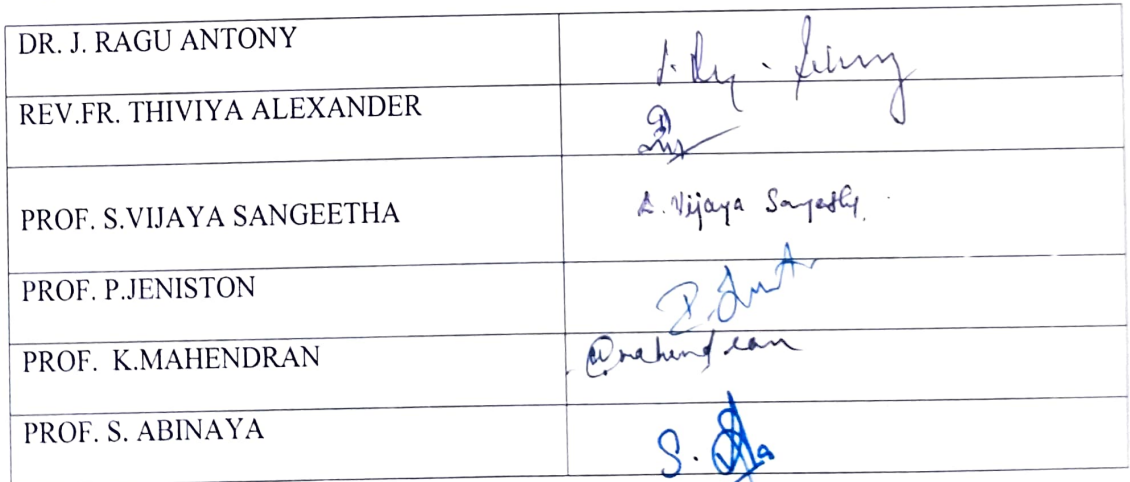 DR. J. RAGU ANTONY
REV.FR. THIVIYA ALEXANDER
PROF. S.VIJAYA SANGEETHA
S. Vijaya Sangeetha
PROF. P.JENISTON
PROF. K.MAHENDRAN
mahendran
PROF. S. ABINAYA
S.